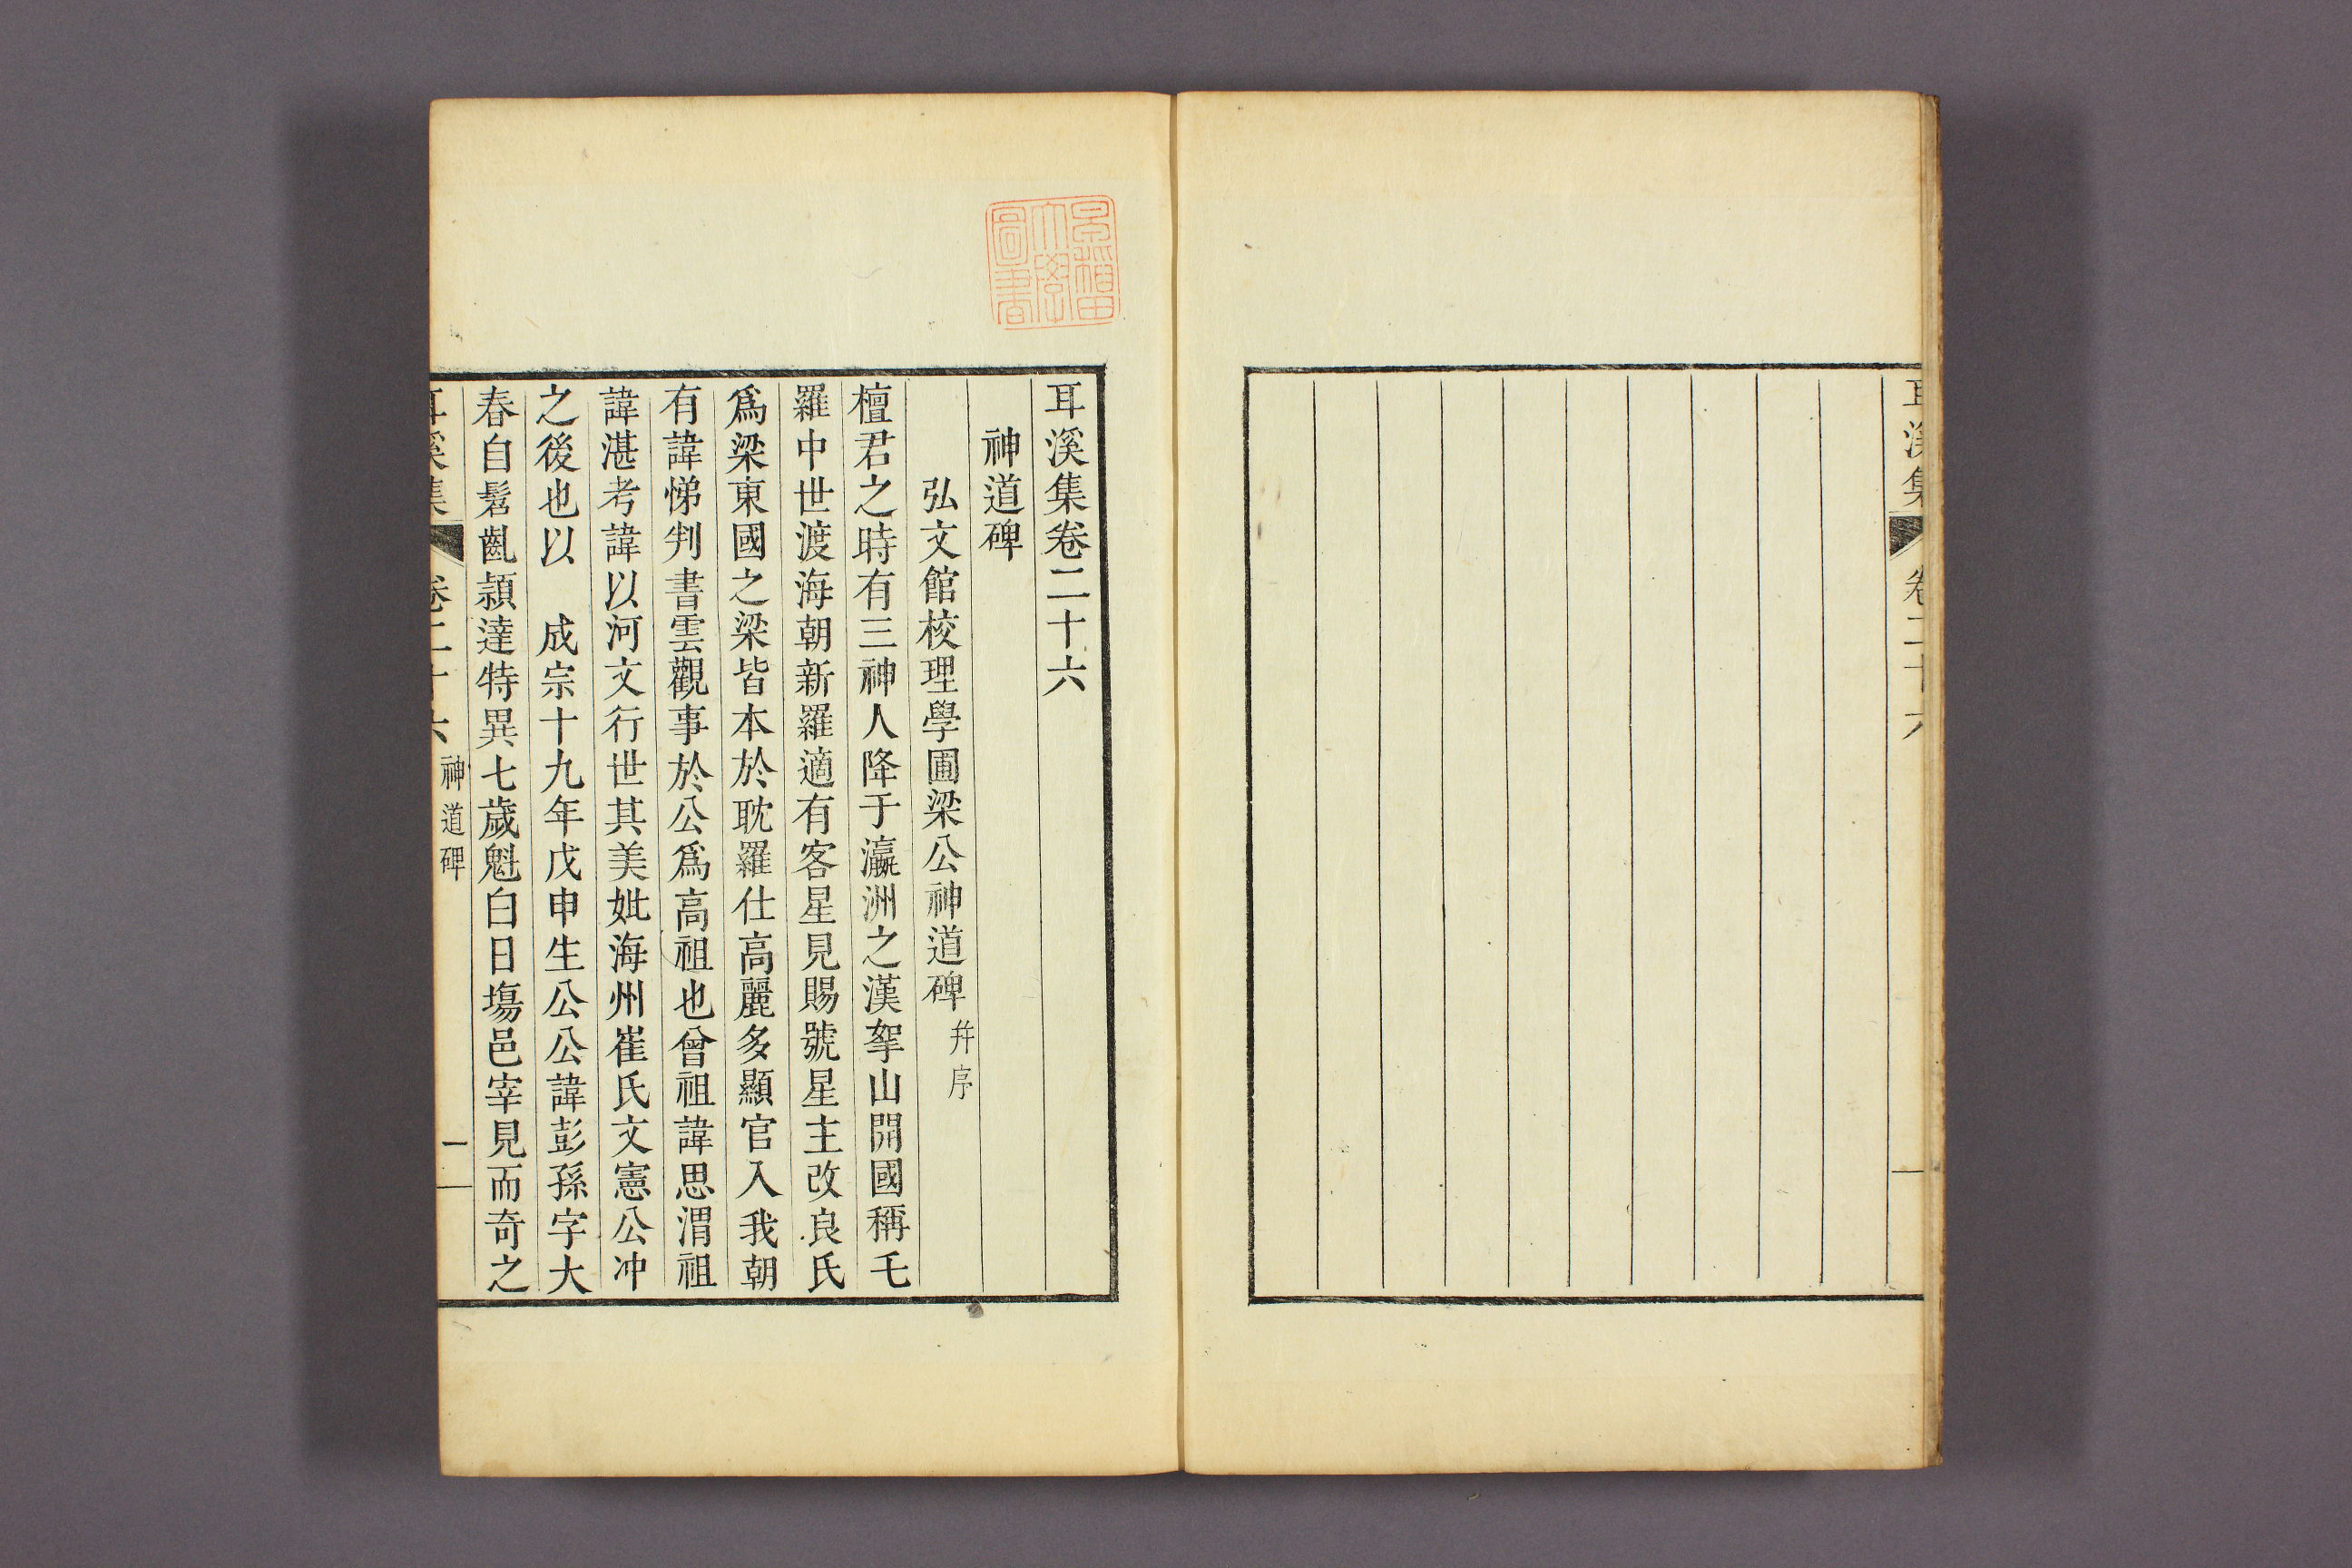 耳溪集
卷二十六
耳溪集卷二十六
神道碑
弘文館校理學圃梁公神道碑 幷序
檀君之時有三神人降于瀛洲之漢拏山開國稱乇
羅中世渡海朝新羅適有客星見賜號星主改良氏
爲梁東國之梁皆本於耽羅仕高麗多顯官入我朝
有諱悌判書雲觀事於公爲高祖也曾祖諱思渭祖
諱湛考諱以河文行世其美妣海州崔氏文憲公冲
之後也以 成宗十九年戊申生公公諱彭孫字大
春自髫齓頴達特異七歲魁白日塲邑宰見而奇之
耳溪集 卷二十六 神道碑 一
早稲田大學圖書